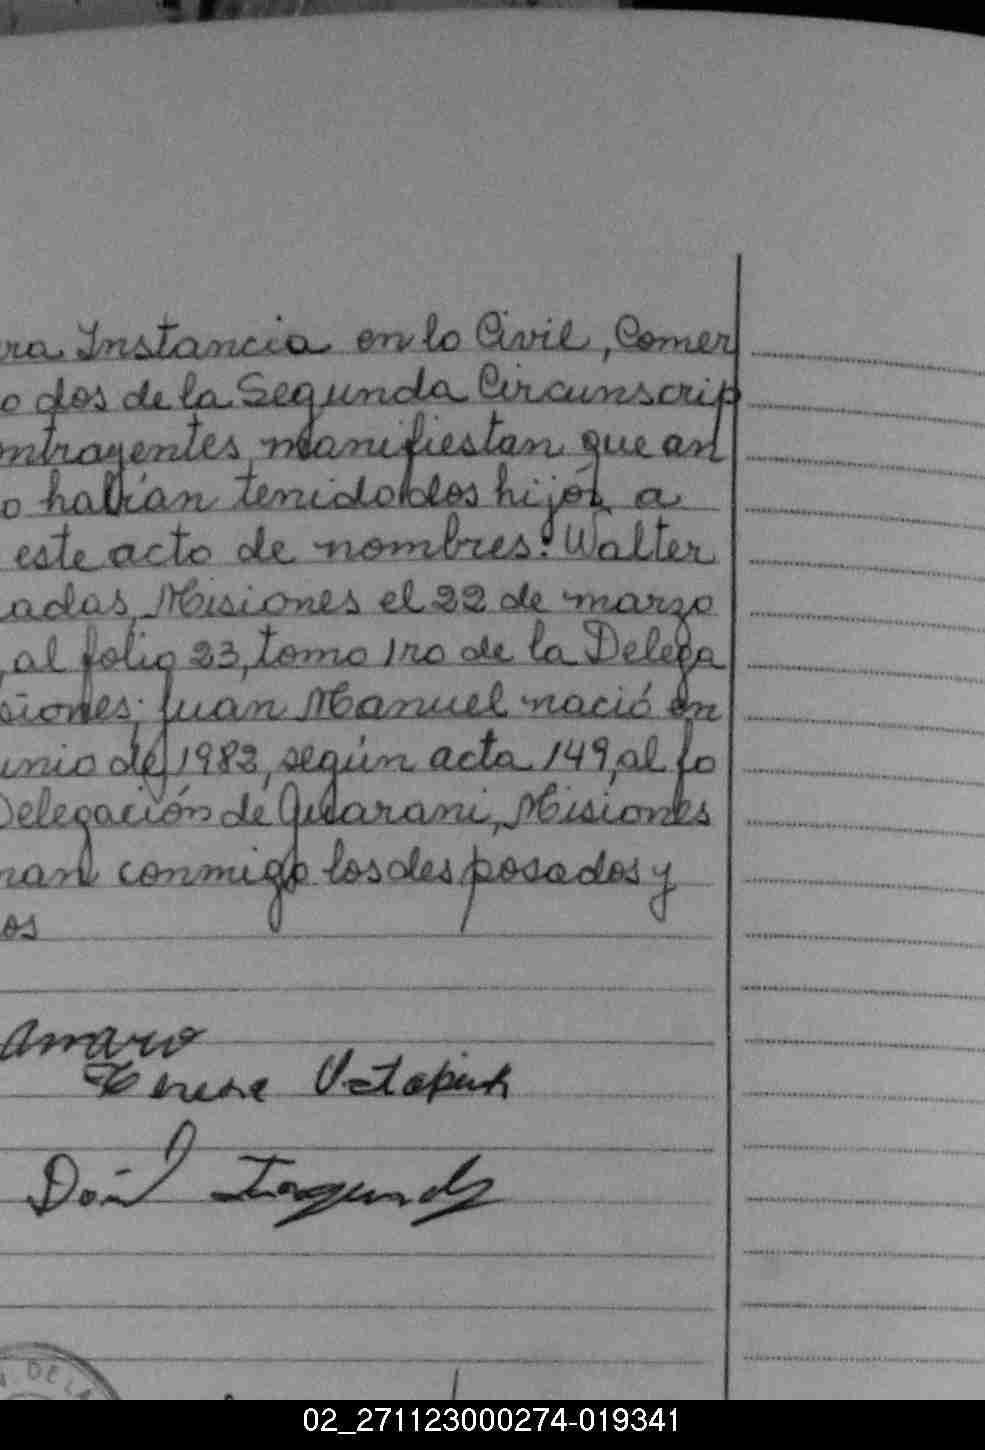 ra Instancia en lo Civil, Comer
o dos de la Segunda Circunscrip
ntrayentes manifiestan que an
o habían tenido dos hijos, a
este acto de nombres: Walter
adas, Misiones el 22 de marzo
, al folio 23, tomo 1ro de la Delega
siones; Juan Manuel nació en
unio de 1982, según acta 149, al fo
Delegación de Guarani, Misiones
man conmigo los desposados y
os
Amaro
DE LA
02_271123000274-019341